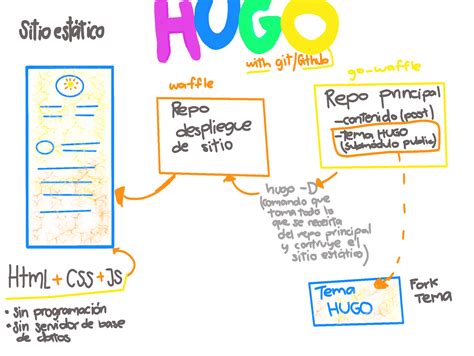 Sitio estático
HUGO
with git/Github
waffle
Repo
despliegue
de sitio
go-waffle
Repo principal
-contenido (post)
-Tema HUGO
(submódulo public)
hugo -D
(comando que
toma todo lo
que se necesita
del repo principal
y contruye el
sitio estático)
HTML + CSS + JS
• Sin programación
• Sin servidor de base
de datos
Tema
HUGO
Fork
Tema